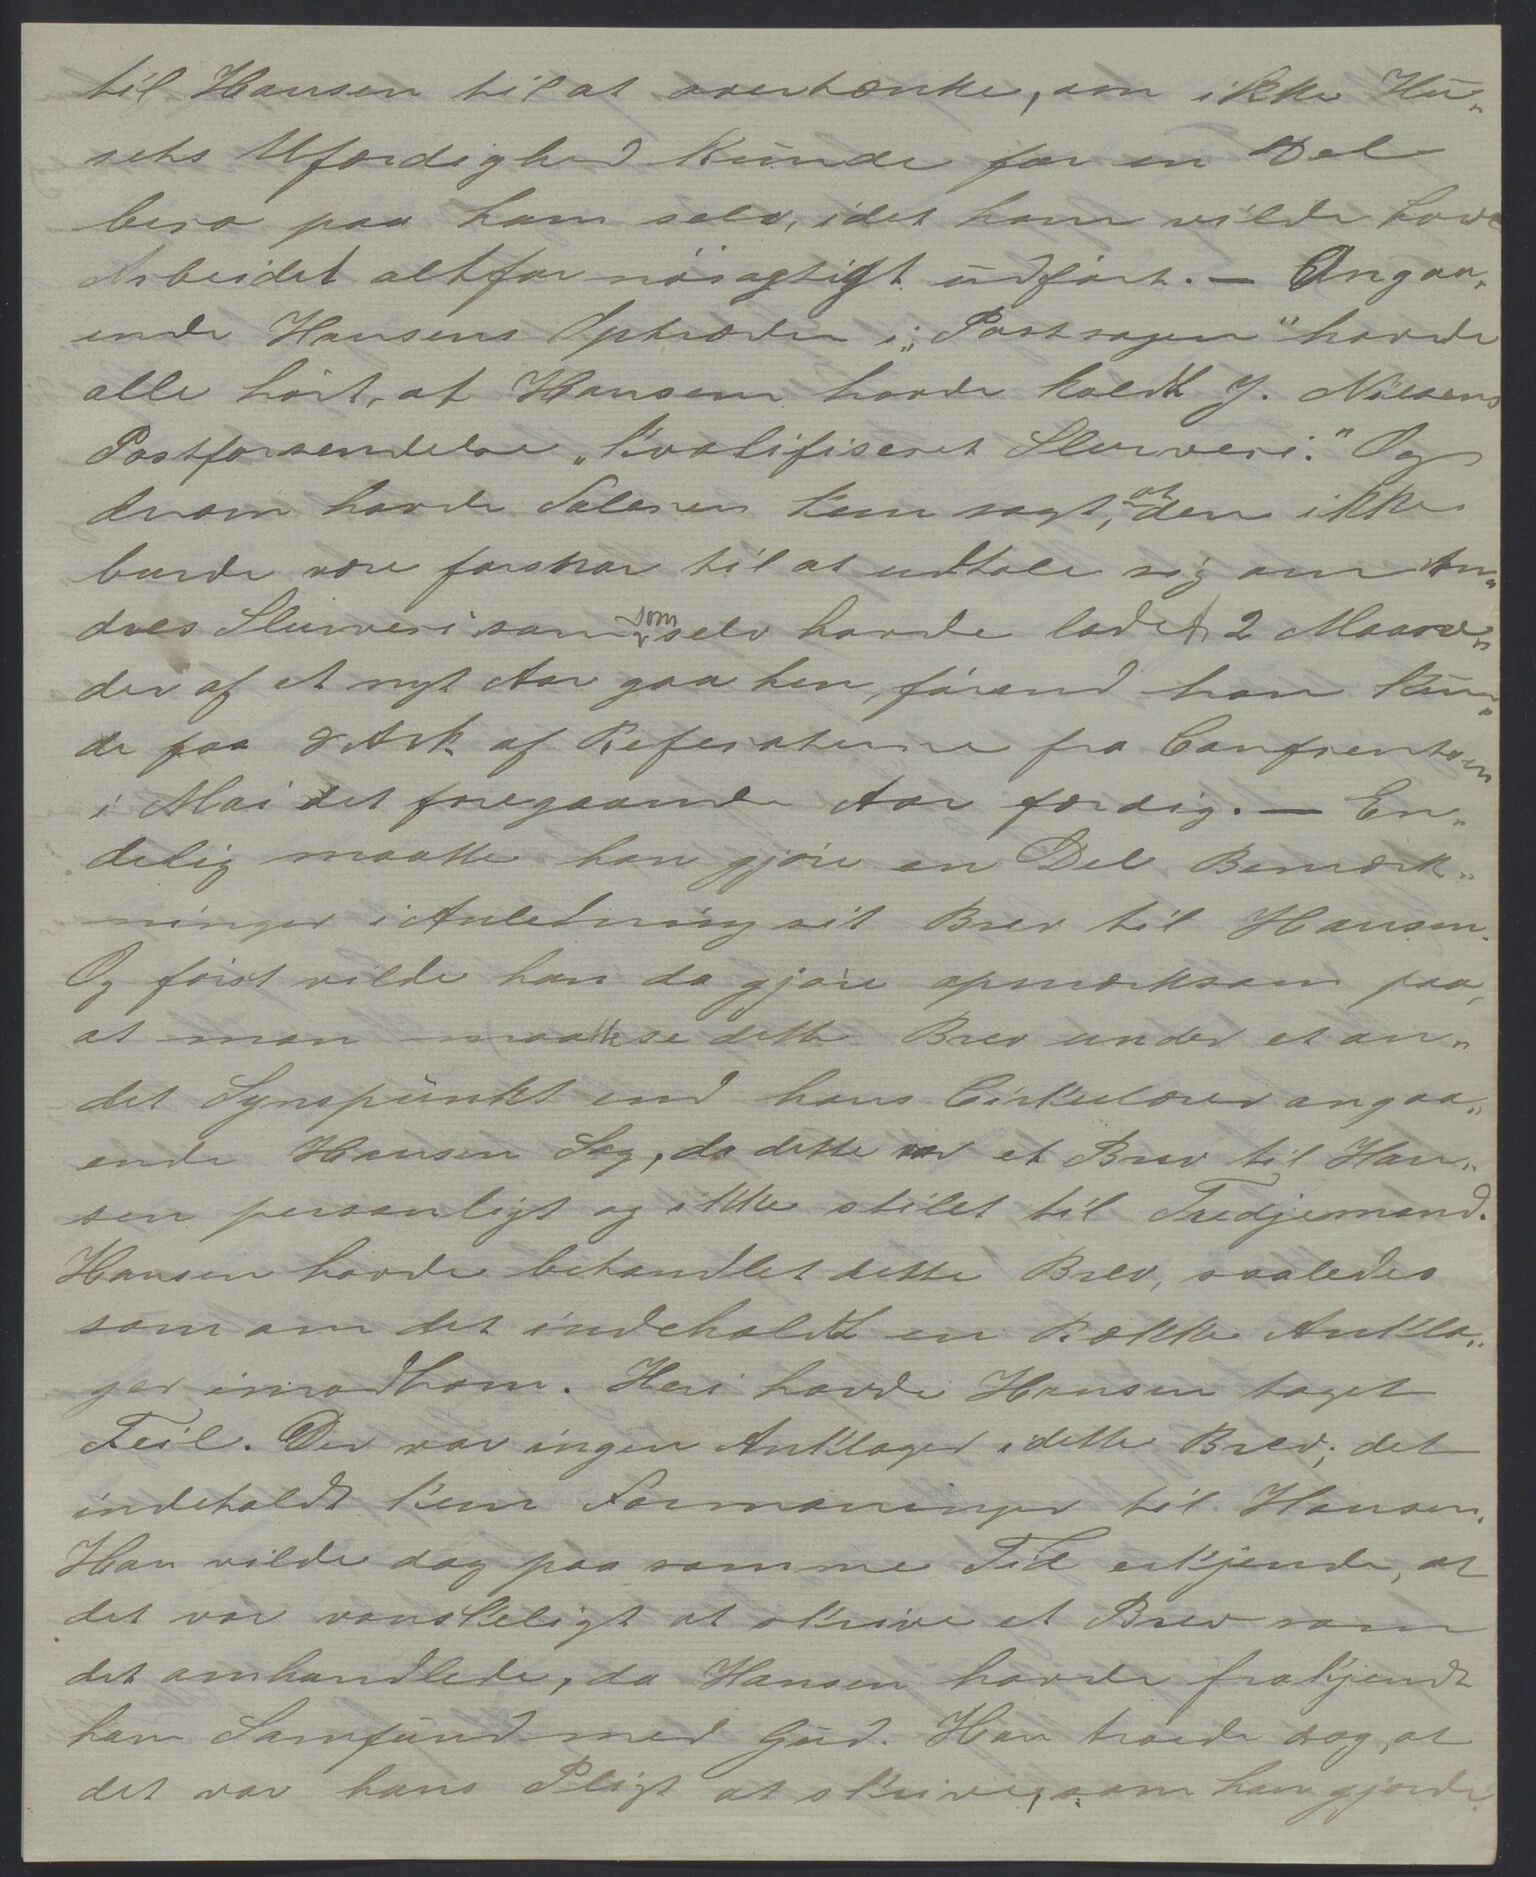 til Hansen til at overtænke, om ikke Hu„
sets Ufærdighed kunde for en Del
bero paa ham selv, idet han vilde have
Arbeidet altfor nöiagtigt udfört. — Angaa„
ende Hansens Optræden i „Postsagen“ havde
alle hört, at Hansen havde kaldt J. Nilsens
Postforsendelse „kvalifiseret Slurveri.“ Og
derom havde Taleren kun sagt, at den ikke
burde være forsnar til at udtale sig om An„
dres Slurveri som som selv havde ladet 2 Maane„
der af et nyt Aar gaa hen, förend han kun„
de faa 8 Ark af Referaterne fra Confrentsen
i Mai det foregaaende Aar færdig. — En„
delig maatte han gjöre en Del Bemærk„
ninger i Anledning sit Brev til Hansen.
Og först vilde han da gjöre opmærksom paa,
at man maatte se dette Brev under et an„
det Synspunkt end hans Cirkulærer angaa„
ende Hansen Sag, da dette var et Brev til Han„
sen personligt og ikke stilet til Tredjemand.
Hansen havde behandlet dette Brev, saaledes
som om det indeholdt en Række Ankla„
ger imod ham. Heri havde Hansen taget
Feil. Der var ingen Anklager i dette Brev; det
indeholdt kun Formaninger til Hansen.
Han vilde dog paa samme Tid erkjende, at
det var vanskeligt at skrive et Brev som
det omhandlede, da Hansen havde frakjendt
ham Samfund med Gud. Han troede dog, at
det var hans Pligt at skrive, som han gjorde.